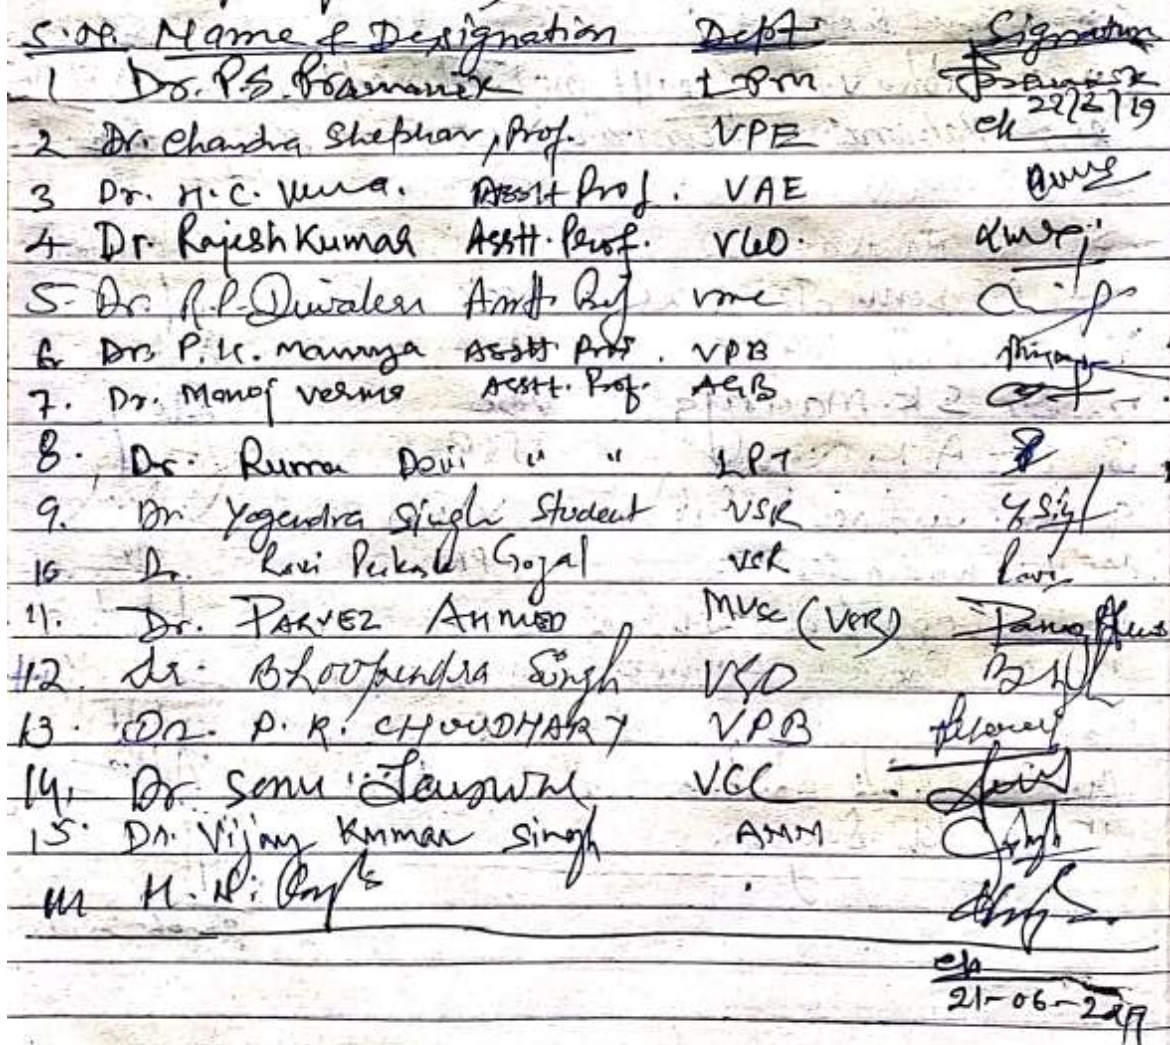 S.No. Name & Designation Dept. Signature
1 Dr. P.S. Pramanik LPM Pramanik
22/2/19
2 Dr. Chandra Shekhar, Prof. VPE
3 Dr. H.C. Verma. Asstt Prof. VAE
4 Dr. Rajesh Kumar Asstt. Prof. VGO.
5- Dr. R.P. Diwakar Asstt. Prof VMC
6 Dr. P.K. Maurya Asstt Prof. VPB
7. Dr. Manoj Verma Asstt. Prof. AGB
8. Dr. Ruma Devi " " LPT
9. Dr Yogendra Singh Student VSR Y.Singh
10. Dr. Ravi Prakash Goyal VSR Ravi
11. Dr. PARVEZ AHMED MVSc (VSR)
12. Dr. Bhoopendra Singh VGO
13. Dr. P.R. CHOUDHARY VPB
14. Dr. Sonu Jaiswal VCC
15. Dr. Vijay Kumar Singh AMM
H.N.
21-06-2019